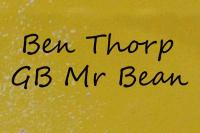 Ben Thorp
GB Mr Bean